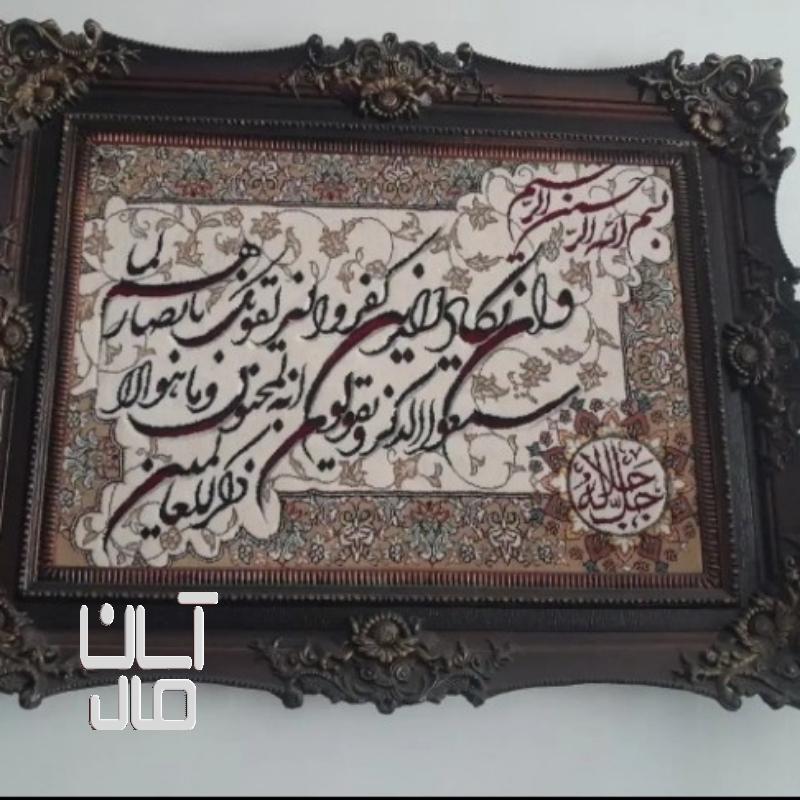 بسم الله الرحمن الرحیم
وان یکاد الذین کفروا لیزلقونک بابصارهم لما
سمعوا الذکر و یقولون انه لمجنون وما هو الا
ذکر للعالمین
جل جلاله
آسان
مال